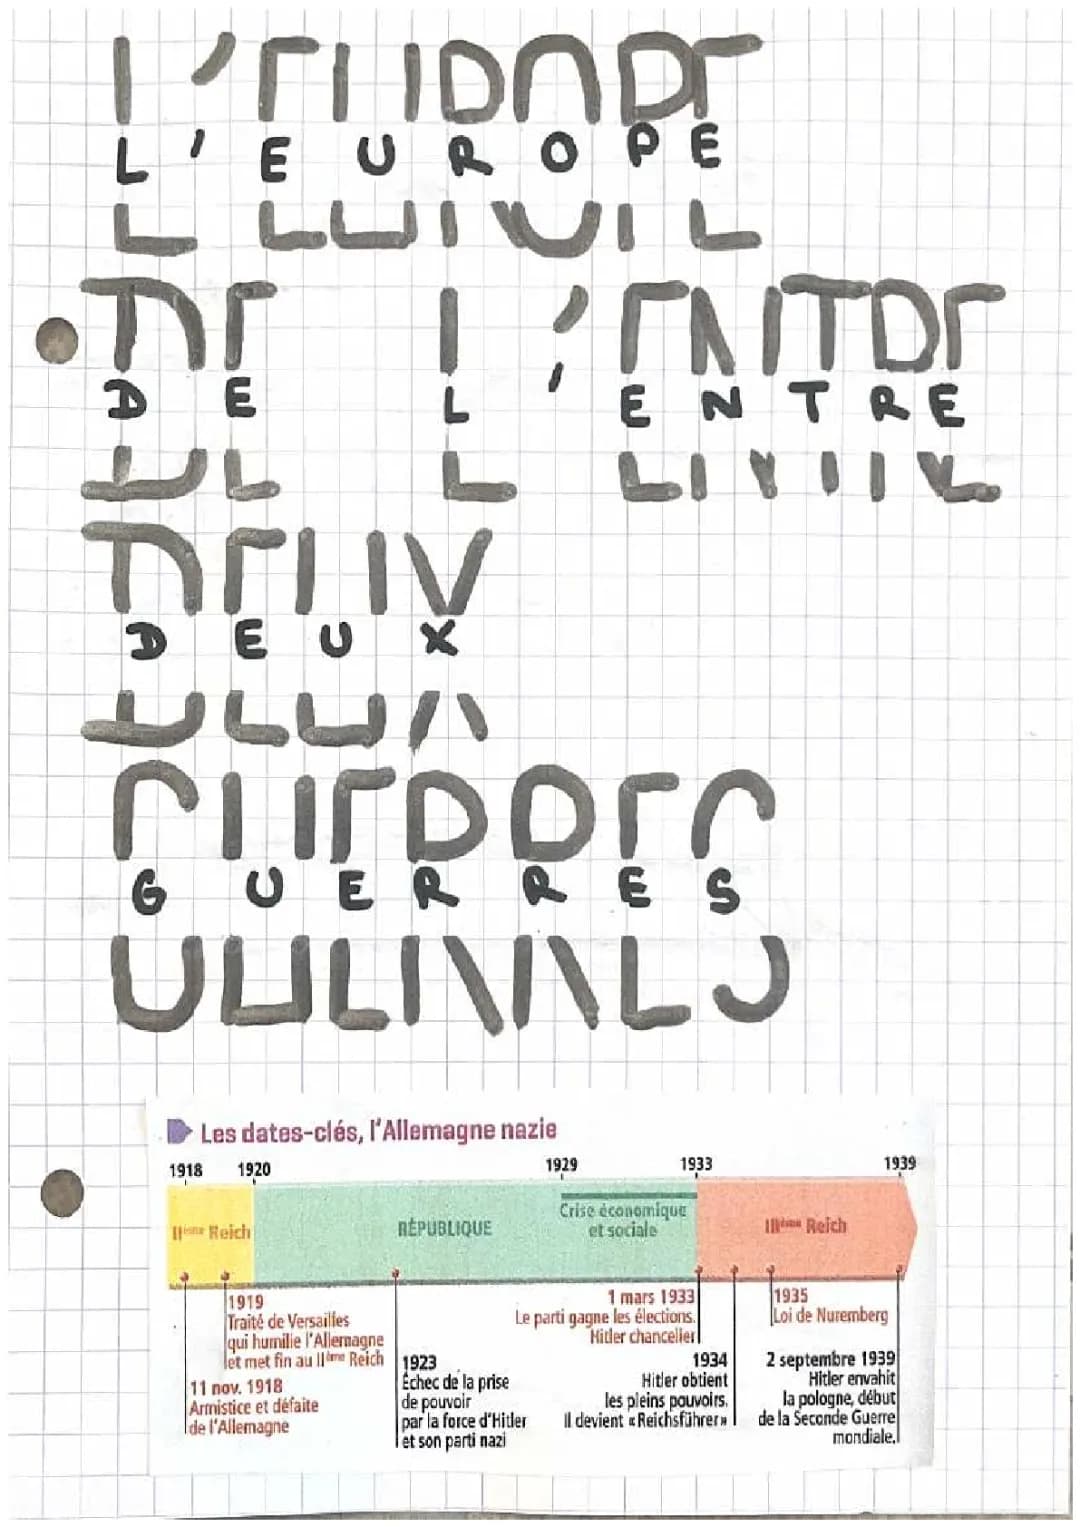 L'EUROPE
DE L'ENTRE
DEUX
GUERRES
Les dates-clés, l'Allemagne nazie
1918 1920 1929 1933 1939
IIème Reich RÉPUBLIQUE Crise économique et sociale IIIème Reich
1919
Traité de Versailles
qui humilie l'Allemagne
et met fin au IIème Reich
11 nov. 1918
Armistice et défaite
de l'Allemagne
1923
Échec de la prise
de pouvoir
par la force d'Hitler
et son parti nazi
1 mars 1933
Le parti gagne les élections.
Hitler chancelier
1934
Hitler obtient
les pleins pouvoirs.
Il devient «Reichsführer»
1935
Loi de Nuremberg
2 septembre 1939
Hitler envahit
la pologne, début
de la Seconde Guerre
mondiale.